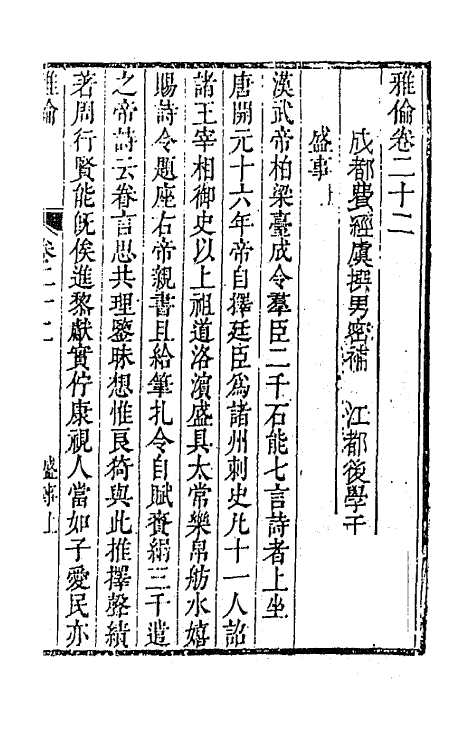 雅倫卷二十二
成都費經虞撰男密補　江都後學于
盛事上
漢武帝柏梁臺成令羣臣二千石能七言詩者上坐
唐開元十六年帝自擇廷臣爲諸州刺史凡十一人詔
諸王宰相御史以上祖道洛濵盛具太常樂帛舫水嬉
賜詩令題座右帝親書且給筆扎令自賦賫絹三千遣
之帝詩云眷言思共理鑒昧想惟良猗與此推擇聲績
著周行賢能旣俟進黎獻實佇康視人當如子愛民亦
雅倫
卷二十二
盛事上